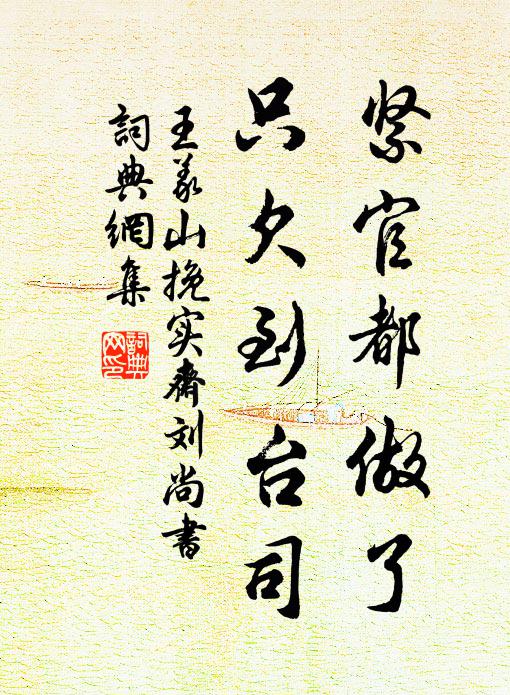 紧官都做了
只欠到台司
王义山挽实斋刘尚书
词典網集
词典网印